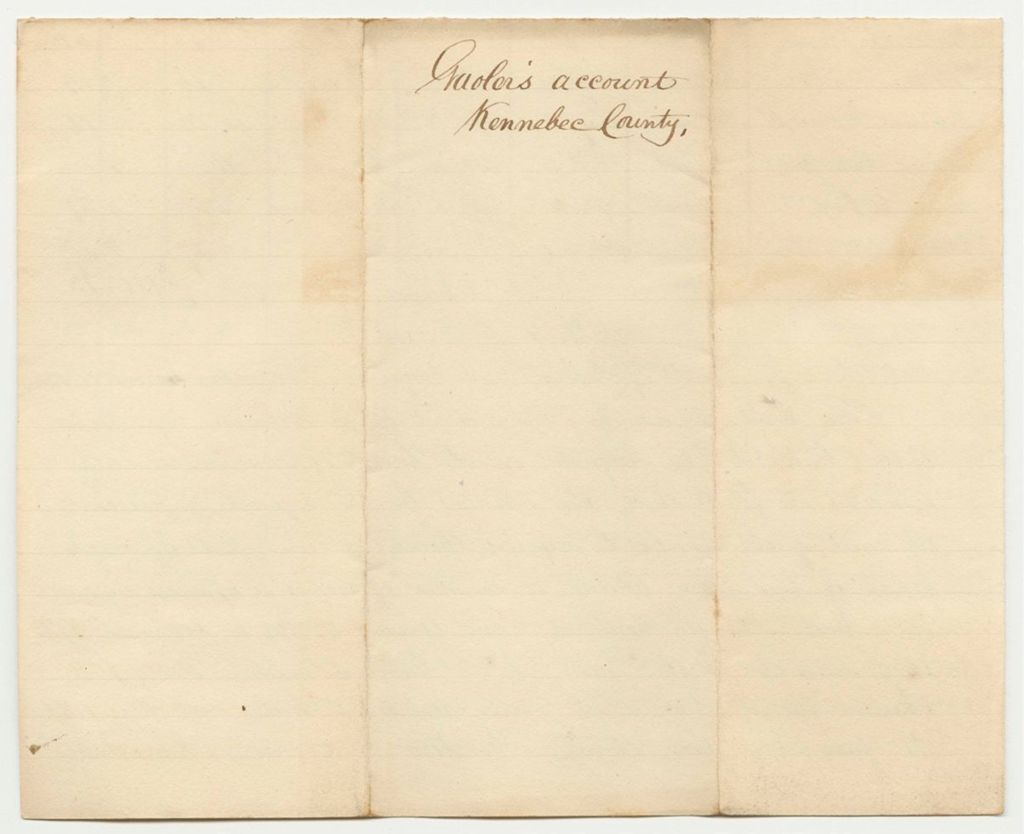 Gaoler's account
Kennebec County,